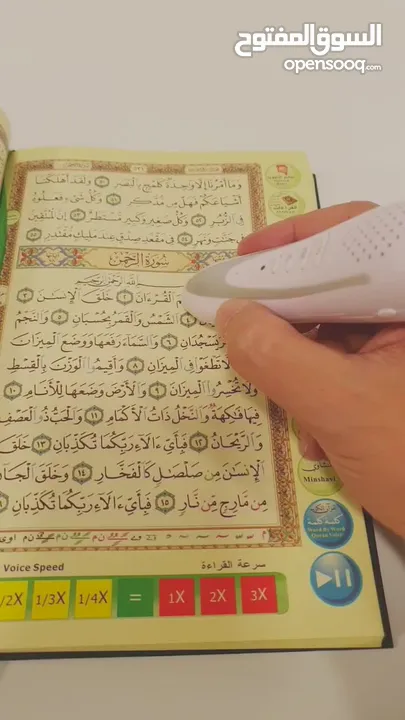 السوق المفتوح
opensooq.com
وَمَآ أَمْرُنَآ إِلَّا وَٰحِدَةٌ كَلَمْحٍۭ بِٱلْبَصَرِ ٥٠ وَلَقَدْ أَهْلَكْنَآ
أَشْيَاعَكُمْ فَهَلْ مِن مُّدَّكِرٍ ٥١ وَكُلُّ شَىْءٍ فَعَلُوهُ
فِى ٱلزُّبُرِ ٥٢ وَكُلُّ صَغِيرٍ وَكَبِيرٍ مُّسْتَطَرٌ ٥٣ إِنَّ ٱلْمُتَّقِينَ
فِى جَنَّٰتٍ وَنَهَرٍ ٥٤ فِى مَقْعَدِ صِدْقٍ عِندَ مَلِيكٍ مُّقْتَدِرٍ ٥٥
سُورَةُ الرَّحْمَٰن
ٱللَّهِ ٱلرَّحْمَٰنِ ٱلرَّحِيمِ
ٱلْقُرْءَانَ ٢ خَلَقَ ٱلْإِنسَٰنَ ٣
٤ ٱلشَّمْسُ وَٱلْقَمَرُ بِحُسْبَانٍ ٥ وَٱلنَّجْمُ
يَسْجُدَانِ ٦ وَٱلسَّمَآءَ رَفَعَهَا وَوَضَعَ ٱلْمِيزَانَ
أَلَّا تَطْغَوْا۟ فِى ٱلْمِيزَانِ ٨ وَأَقِيمُوا۟ ٱلْوَزْنَ بِٱلْقِسْطِ
وَلَا تُخْسِرُوا۟ ٱلْمِيزَانَ ٩ وَٱلْأَرْضَ وَضَعَهَا لِلْأَنَامِ ١٠
فِيهَا فَٰكِهَةٌ وَٱلنَّخْلُ ذَاتُ ٱلْأَكْمَامِ ١١ وَٱلْحَبُّ ذُو ٱلْعَصْفِ
وَٱلرَّيْحَانُ ١٢ فَبِأَىِّ ءَالَآءِ رَبِّكُمَا تُكَذِّبَانِ ١٣ خَلَقَ
ٱلْإِنسَٰنَ مِن صَلْصَٰلٍ كَٱلْفَخَّارِ ١٤ وَخَلَقَ ٱلْجَآنَّ
مِن مَّارِجٍ مِّن نَّارٍ ١٥ فَبِأَىِّ ءَالَآءِ رَبِّكُمَا تُكَذِّبَانِ
Minshawi
كلمة كلمة
Word By Word
Voice Speed سرعة القراءة
1/2X 1/3X 1/4X = 1X 2X 3X